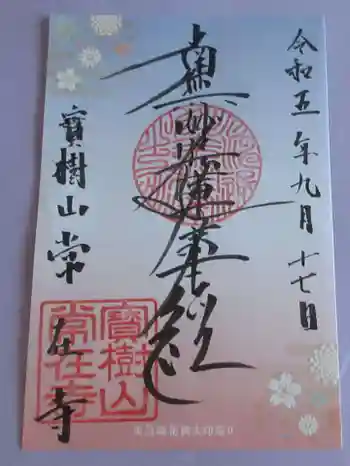 令和五年九月十七日
南無妙法蓮華経
寳樹山常在寺
寳樹山
常在寺